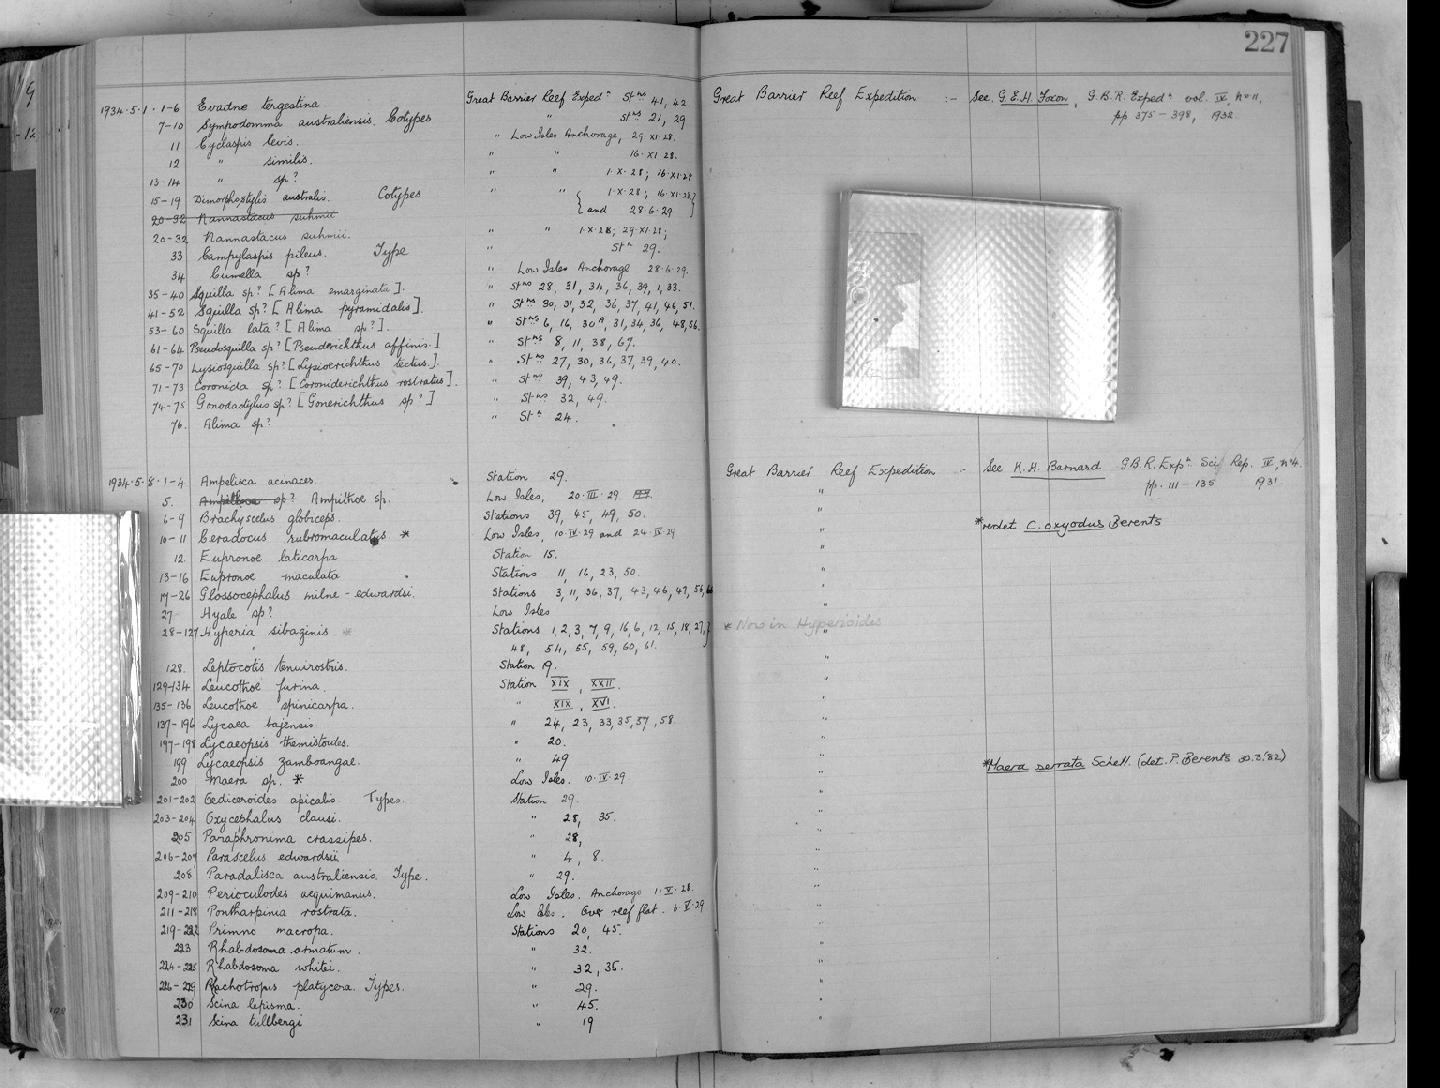 227
1934.5.1.1-6 Evadne tergestina Great Barrier Reef Exped.n St.ns 41, 42 Great Barrier Reef Expedition :- See G.E.H. Foxon, G.B.R. Exped.n vol. IV, No 11,
7-10 Sympodomma australiensis. Cotypes " St.ns 21, 29 pp 375-398, 1932.
11 Cyclaspis levis. " Low Isles Anchorage, 29.XI.28.
12 " similis. " " 16.XI.28.
13-14 " sp? " " 1.X.28; 16.XI.28
15-19 Dimorphostylis australis. Cotypes " " { 1.X.28; 16.XI.28 }
20-32 Nannastacus suhmii { and 28.6.29 }
20-32 Nannastacus suhmii. " " 1.X.28; 29.XI.28;
33 Campylaspis pileus. Type " St.n 29.
34 Cumella sp? " Low Isles Anchorage 28.6.29.
35-40 Squilla sp? [Alima emarginata]. " St.ns 28, 31, 34, 36, 39, 1, 33.
41-52 Squilla sp? [Alima pyramidalis]. " St.ns 30, 31, 32, 36, 37, 41, 46, 51.
53-60 Squilla lata? [Alima sp?]. " St.ns 6, 16, 30, 31, 34, 36, 48, 56.
61-64 Pseudosquilla sp? [Pseuderichthus affinis.] " St.ns 8, 11, 38, 67.
65-70 Lysiosquilla sp? [Lysioerichthus tectus.]. " St.ns 27, 30, 36, 37, 39, 40.
71-73 Coronida sp? [Coroniderichthus rostratus]. " St.ns 39, 43, 49.
74-75 Gonodactylus sp? [Gonerichthus sp?] " St.ns 32, 49.
76. Alima sp? " St.n 24.
1934.5.8.1-4 Ampelisca acinaces. Station 29. Great Barrier Reef Expedition :- See K.H. Barnard G.B.R. Exp.n Sci. Rep. IV, No 4.
5. Ampithoe sp? Ampithoe sp. Low Isles, 20.III.29 " pp. 111-135 1931.
6-9 Brachyscelus globiceps. Stations 39, 45, 49, 50. "
10-11 Ceradocus rubromaculatus * Low Isles, 10.IV.29 and 24.IV.29 " *redet C. oxyodus Berents
12. Eupronoe laticarpa Station 15. "
13-16 Eupronoe maculata Stations 11, 16, 23, 50. "
17-26 Glossocephalus milne-edwardsi. Stations 3, 11, 36, 37, 43, 46, 47, 56, "
27 Hyale sp? Low Isles "
28-127 Hyperia sibaginis * Stations 1, 2, 3, 7, 9, 16, 6, 12, 15, 18, 27, * Now in Hyperioides "
48, 54, 55, 59, 60, 61.
128. Leptocotis tenuirostris. Station 19. "
129-134 Leucothoe furina. Station XIX, XXII. "
135-136 Leucothoe spinicarpa. " XIX, XVI. "
137-196 Lycaea bajensis " 24, 23, 33, 35, 57, 58. "
197-198 Lycaeopsis themistoides. " 20. "
199 Lycaeopsis zamboangae. " 49 "
200 Maera sp. * Low Isles. 10.IV.29 " *Maera serrata Schell. (det. P. Berents 30.3.'82)
201-202 Oediceroides apicalis Types. Station 29. "
203-204 Oxycephalus clausi. " 28, 35. "
205 Paraphronima crassipes. " 28, "
206-207 Parascelus edwardsii " 4, 8. "
208 Paradalisca australiensis. Type. " 29. "
209-210 Perioculodes aequimanus. Low Isles. Anchorage 1.V.28. "
211-218 Pontharpinia rostrata. Low Isles. Over reef flat. "
219-222 Primno macropa. Stations 20, 45. "
223 Rhabdosoma armatum. " 32. "
224-225 Rhabdosoma whitei. " 32, 35. "
226-229 Rhachotropis platycera. Types. " 29. "
230 Scina lepisma. " 45. "
231 Scina tullbergi " 19 "